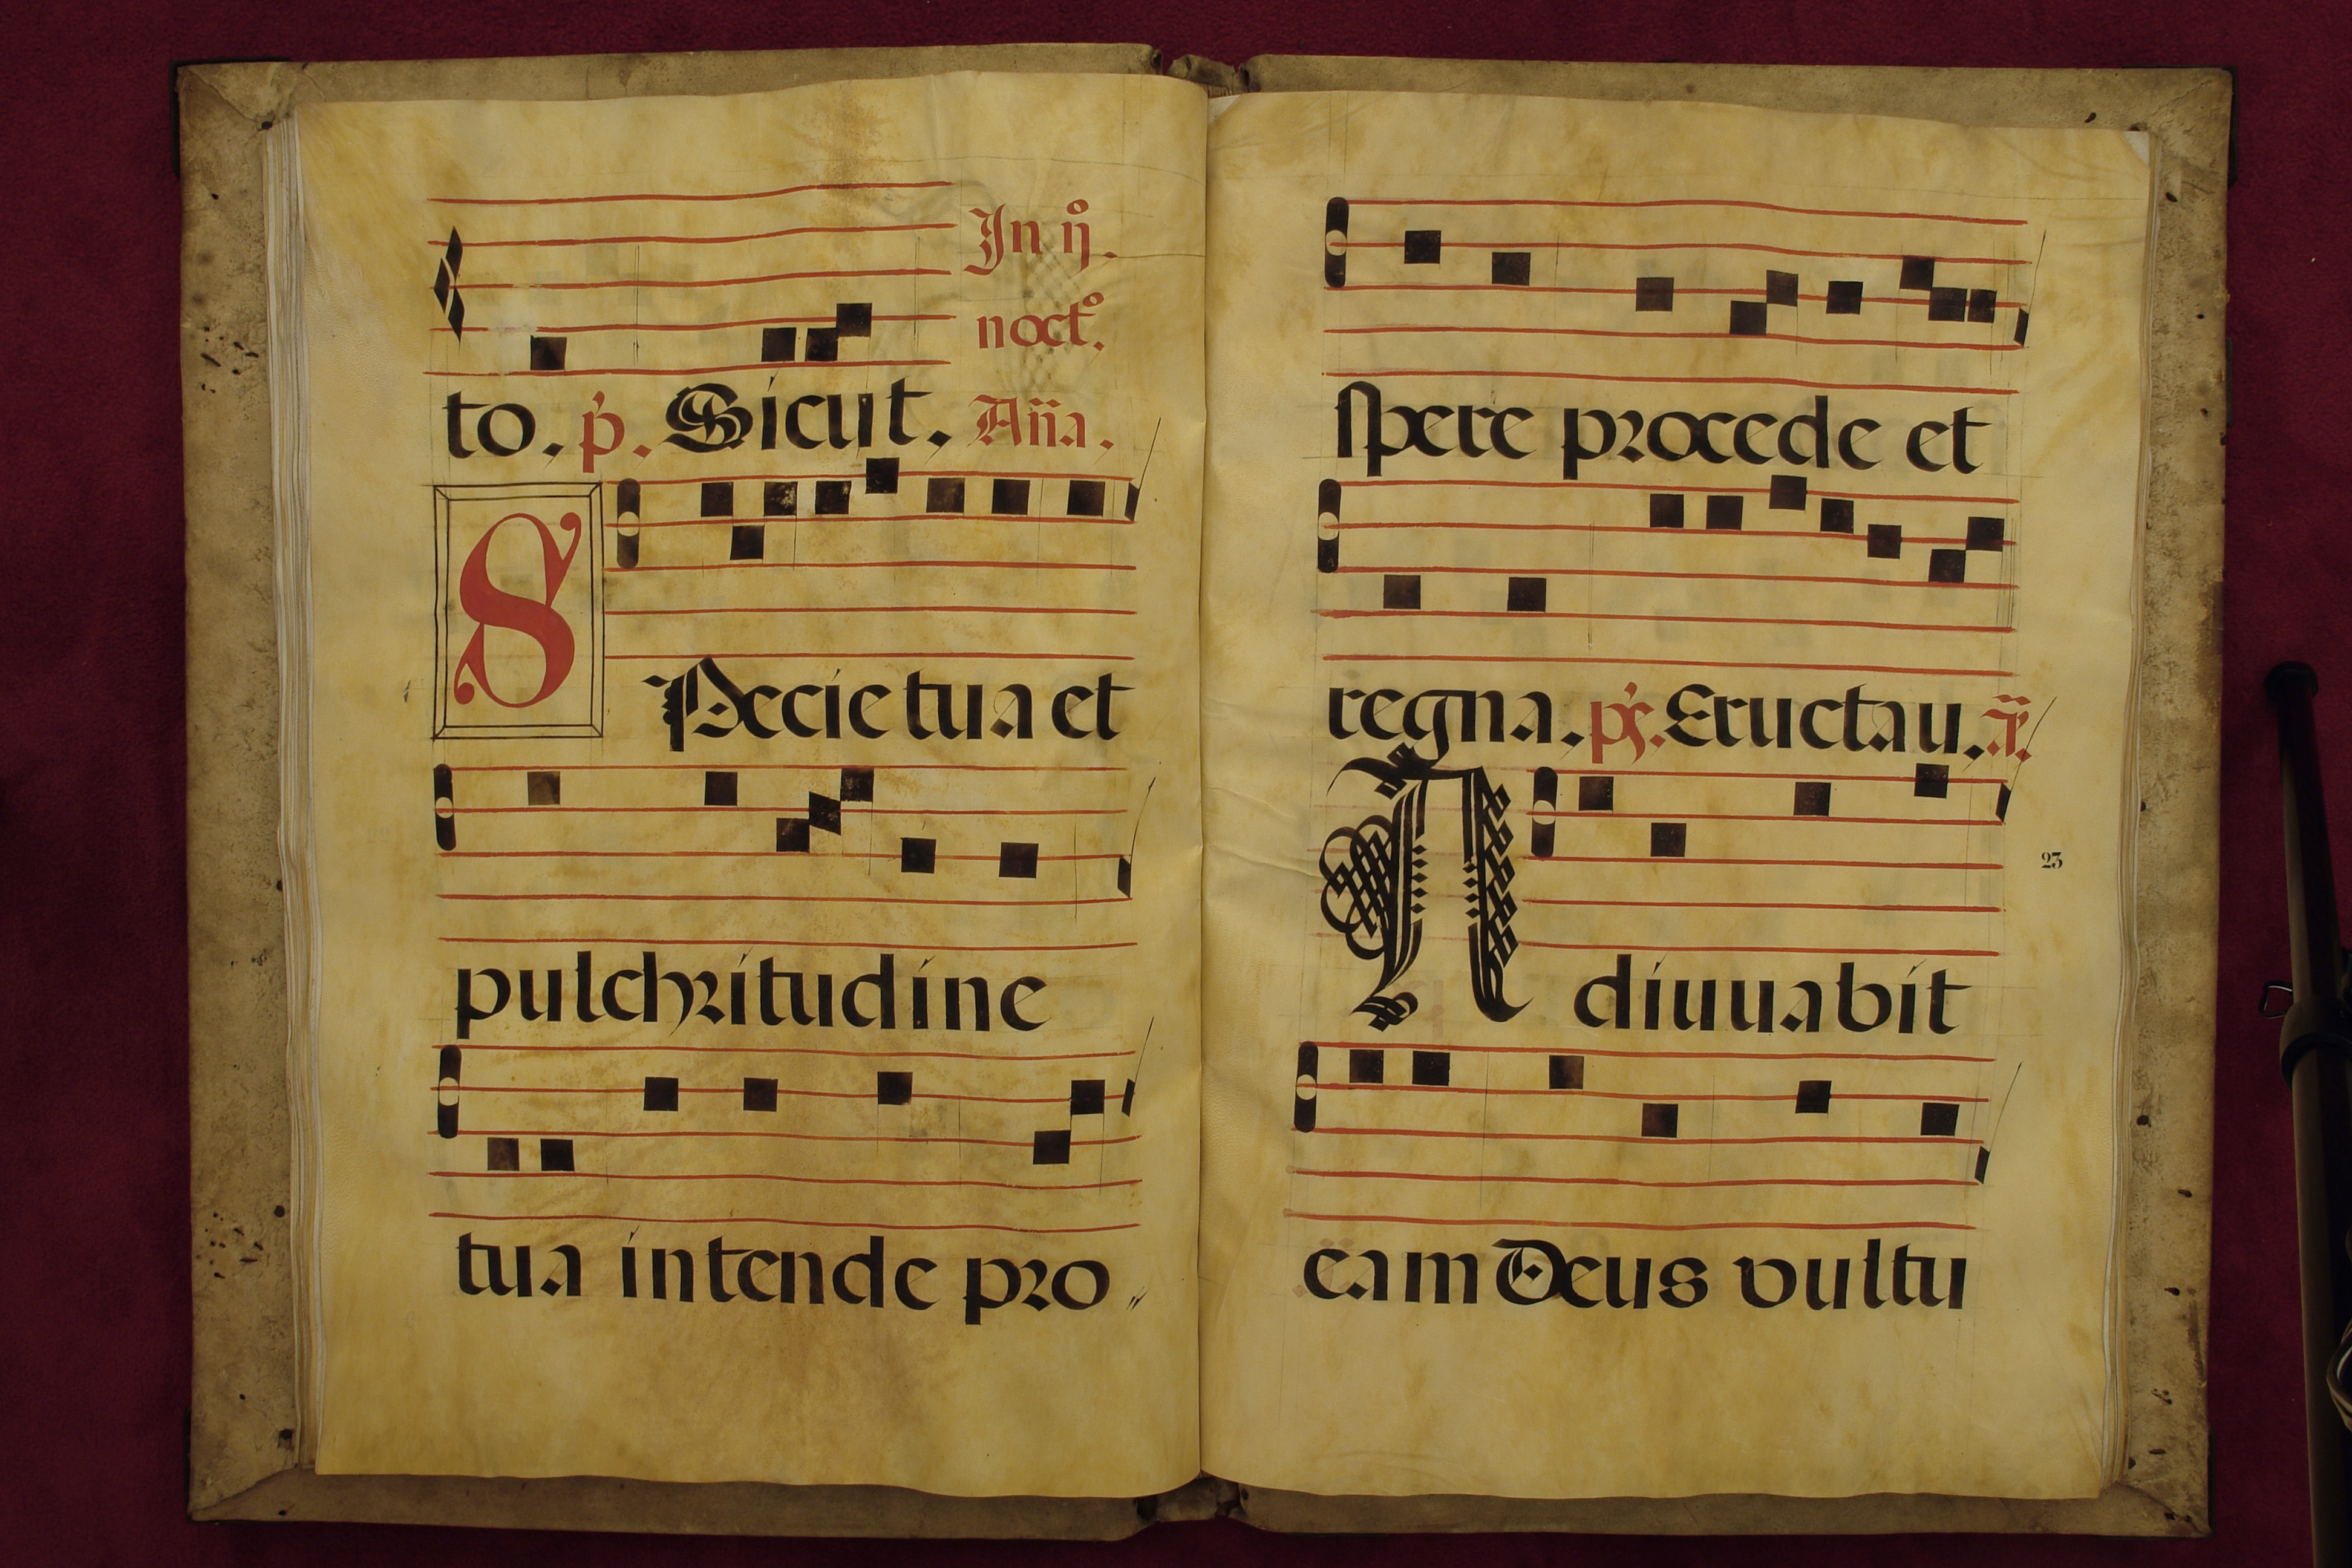 In ij.
noct.
to. p. Sicut. Aña.
SPecie tua et
pulchritudine
tua intende pro
spere procede et
regna. ps. Eructau. añ.
Adiuuabit
23
eam Deus vultu